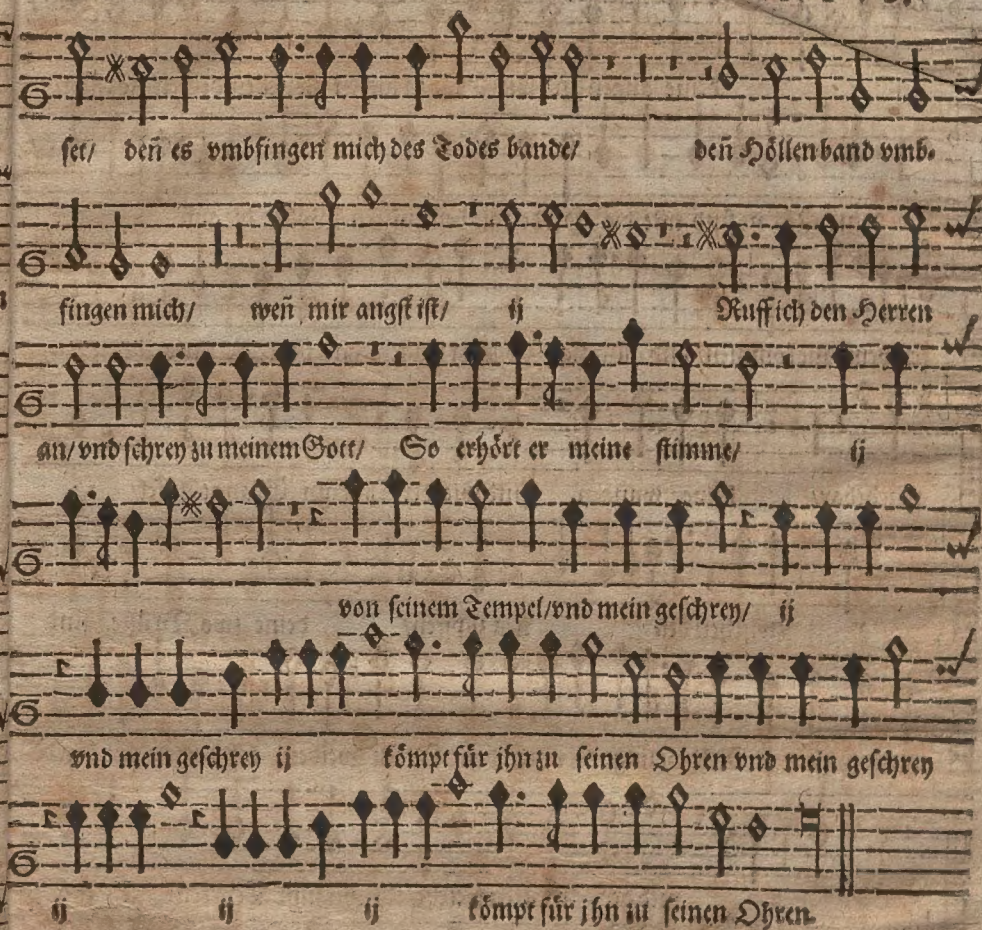 set/ deñ es vmbfingen mich des Todes bande/ deñ Höllenband vmb-
fingen mich/ weñ mir angst ist/ ij Ruff ich den Herren
an/ vnd schrey zu meinem Gott/ So erhört er meine stimme/ ij
von seinem Tempel/ vnd mein geschrey/ ij
vnd mein geschrey ij kömpt für jhn zu seinen Ohren vnd mein geschrey
ij ij ij kömpt für jhn zu seinen Ohren.